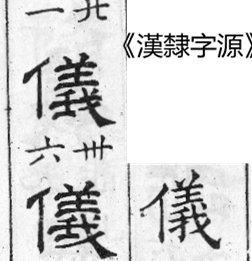 《漢隸字源》
儀
一
儀
卅六
儀